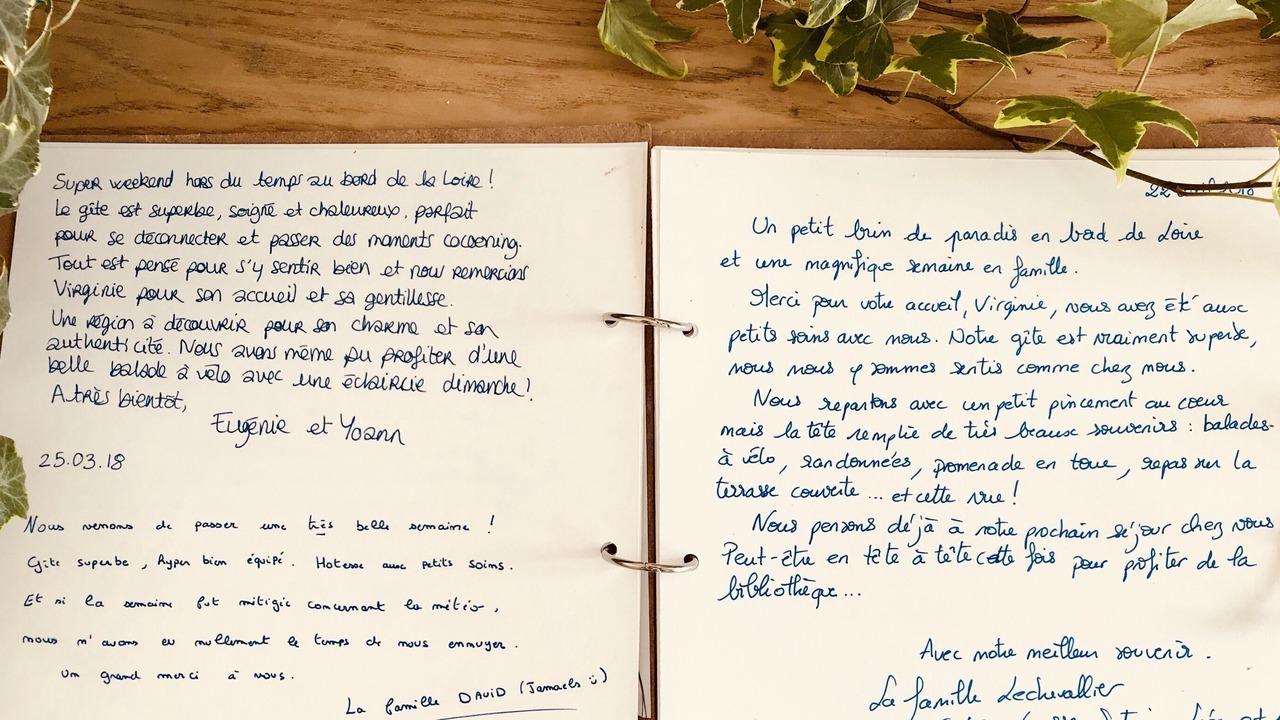 Super weekend hors du temps au bord de la Loire !
Le gîte est superbe, soigné et chaleureux, parfait
pour se déconnecter et passer des moments cocooning.
Tout est pensé pour s'y sentir bien et nous remercions
Virginie pour son accueil et sa gentillesse.
Une région à découvrir pour son charme et son
authenticité. Nous avons même pu profiter d'une
belle balade à vélo avec une éclaircie dimanche !
A très bientôt,
Eugénie et Yoann
25.03.18
Nous venons de passer une très belle semaine !
Gîte superbe, hyper bien équipé. Hotesse aux petits soins.
Et si la semaine fut mitigée concernant la météo,
nous n'avons eu nullement le temps de nous ennuyer.
Un grand merci à vous.
La famille DAVID
22 2018
Un petit brin de paradis en bord de Loire
et une magnifique semaine en famille.
Merci pour votre accueil, Virginie, vous avez été aux
petits soins avec nous. Notre gîte est vraiment superbe,
nous nous y sommes sentis comme chez nous.
Nous repartons avec un petit pincement au coeur
mais la tête remplie de très beaux souvenirs : balades
à vélo, randonnées, promenade en toue, repas sur la
terrasse couverte ... et cette vue !
Nous pensons déjà à notre prochain séjour chez vous
Peut-être en tête à tête cette fois pour profiter de la
bibliothèque ...
Avec notre meilleur souvenir.
La famille Lechevallier